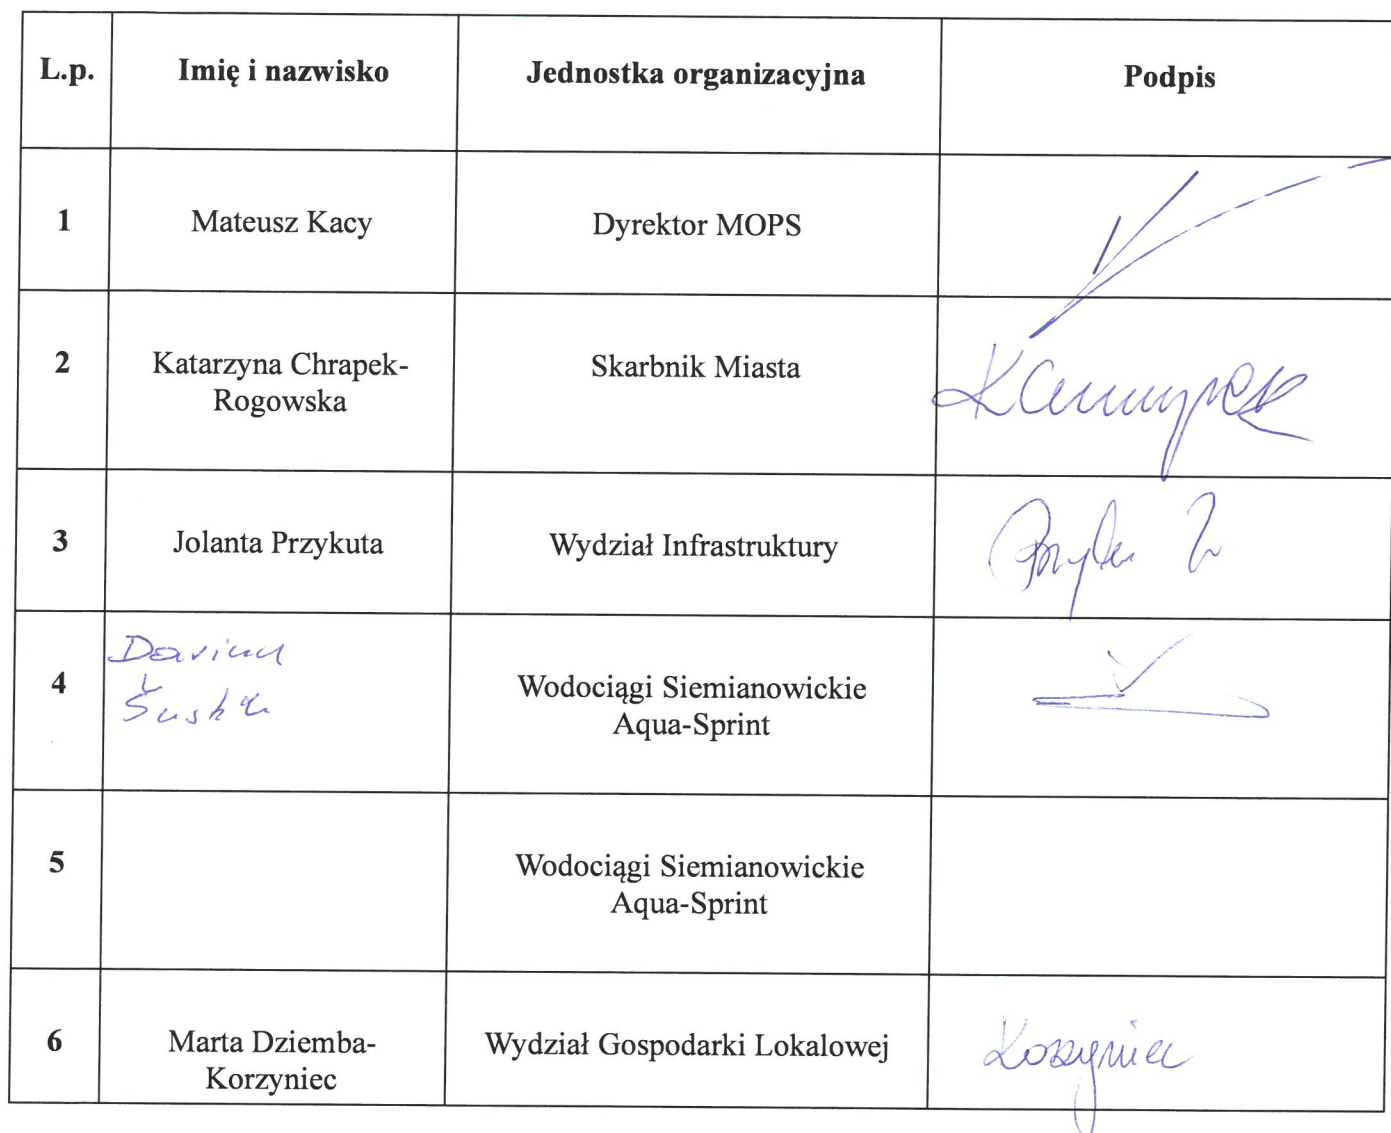 L.p. Imię i nazwisko Jednostka organizacyjna Podpis
1 Mateusz Kacy Dyrektor MOPS
2 Katarzyna Chrapek- Skarbnik Miasta
Rogowska
3 Jolanta Przykuta Wydział Infrastruktury
4 Wodociągi Siemianowickie
Aqua-Sprint
5 Wodociągi Siemianowickie
Aqua-Sprint
6 Marta Dziemba- Wydział Gospodarki Lokalowej
Korzyniec